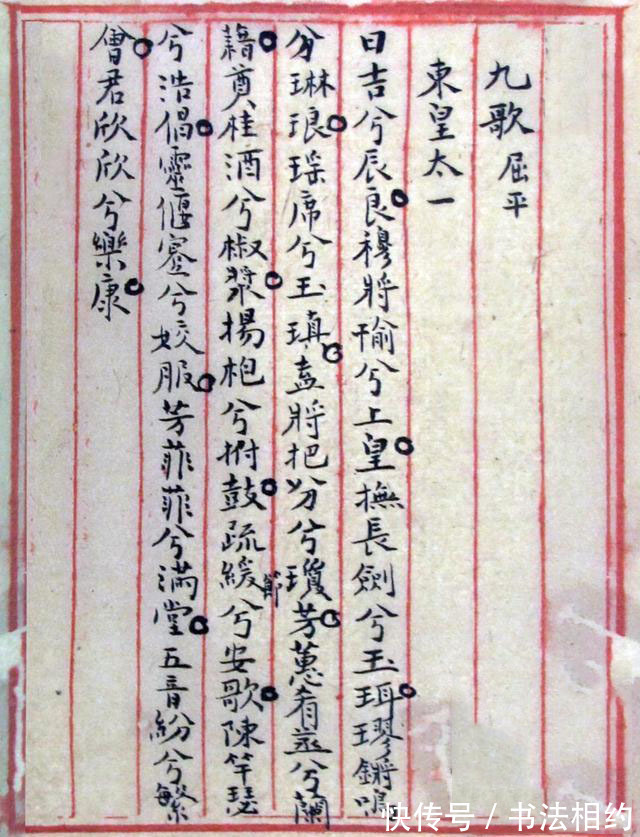 九歌 屈平
東皇太一
日吉兮辰良穆將愉兮上皇撫長劍兮玉珥璆鏘鳴
兮琳琅瑶席兮玉瑱盍將把分兮瓊芳蕙肴蒸兮蘭
藉奠桂酒兮椒漿揚枹兮拊鼓疏緩節兮安歌陳竽瑟
兮浩倡靈偃蹇兮姣服芳菲菲兮滿堂五音紛兮繁
會君欣欣兮樂康
快传号 / 书法相约